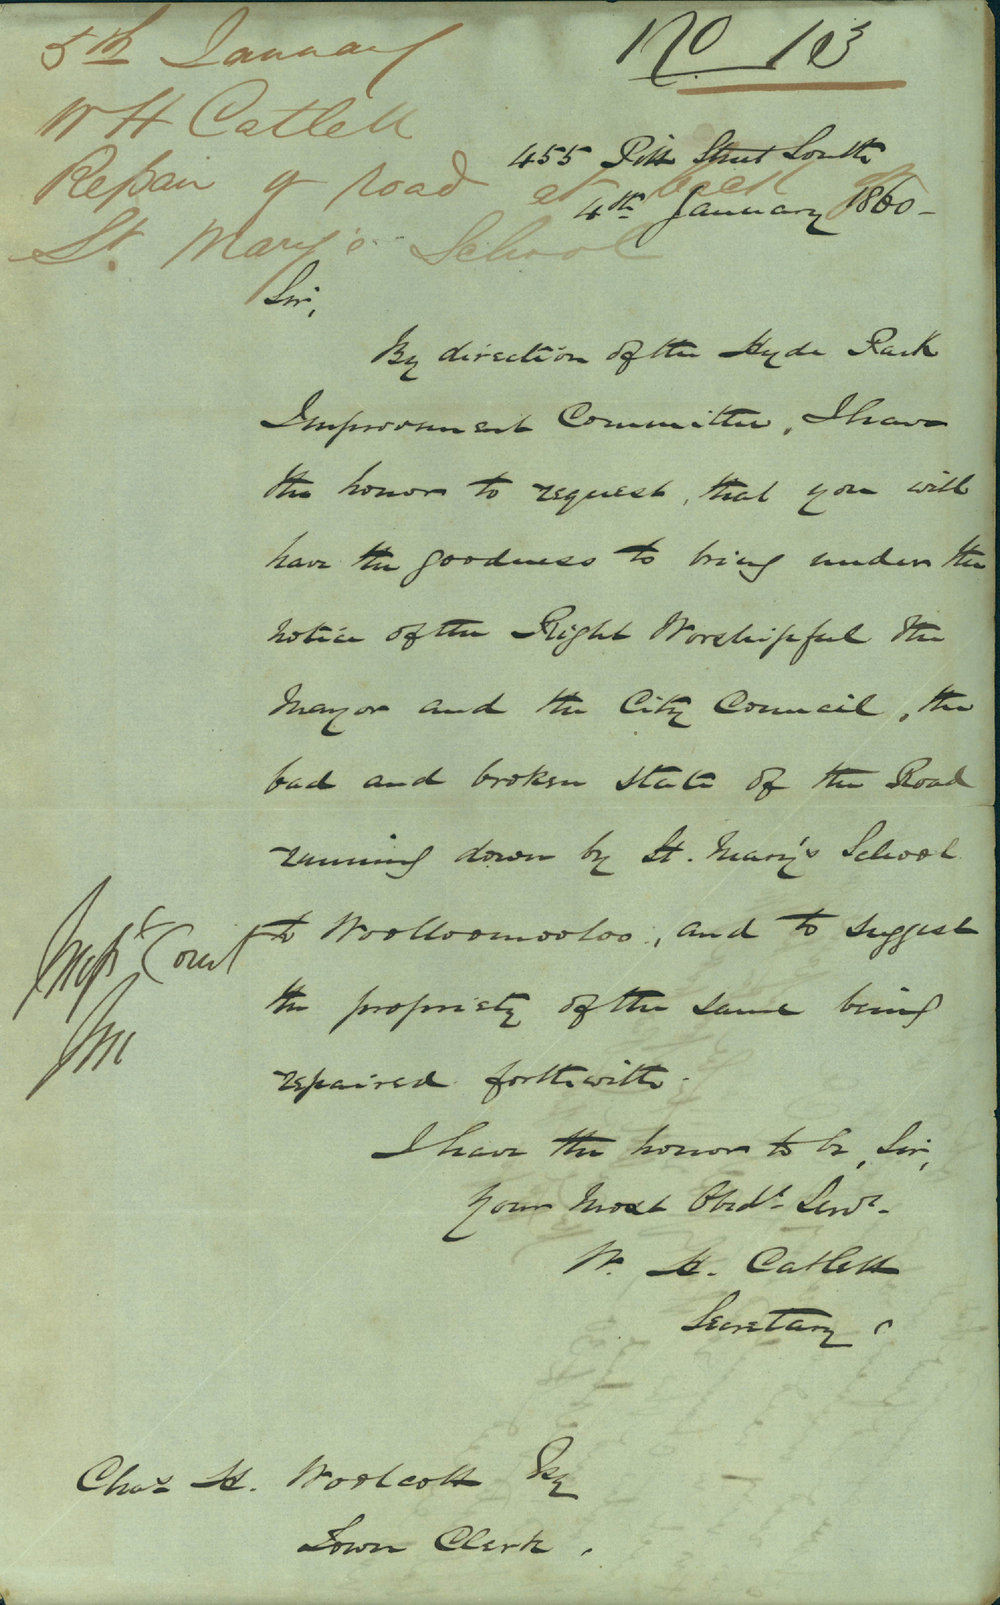 5th January
No 13
W H Catlett
Repair of road at back of
St. Mary's School
455 Pitt Street South
4th January 1860-
Sir,
By direction of the Hyde Park
Improvement Committee, I have
the honor to request, that you will
have the goodness to bring under the
notice of the Right Worshipful the
Mayor and the City Council, the
bad and broken state of the Road
running down by St. Mary's School
to Woolloomooloo, and to suggest
the propriety of the same being
repaired forthwith.
I have the honor to be, Sir,
Your Most Obedt. Servt.
W. H. Catlett
Secretary
Chas H. Woolcott Esq
Town Clerk.